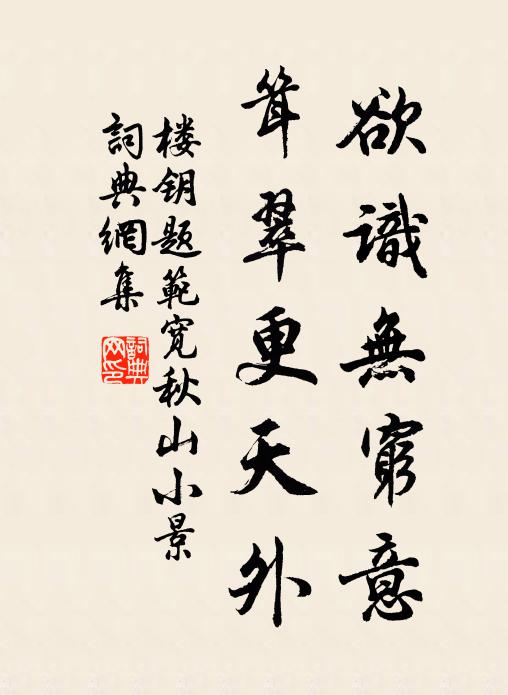 欲識無窮意
聳翠更天外
楼钥题範宽秋山小景
詞典網集
詞典网印